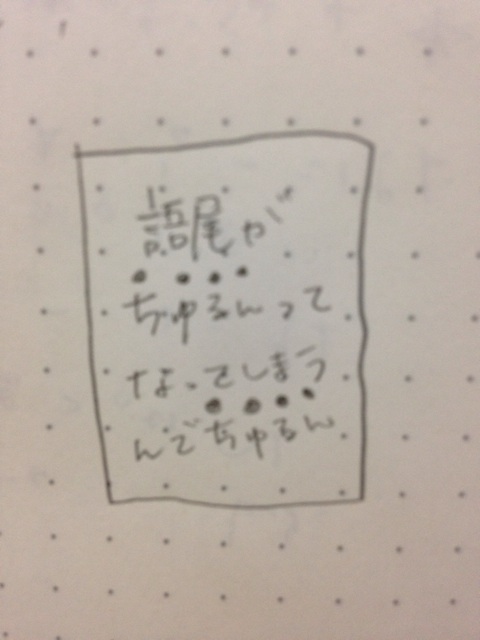 語尾が
ぢゅるんって
なってしまう
んでぢゅるん